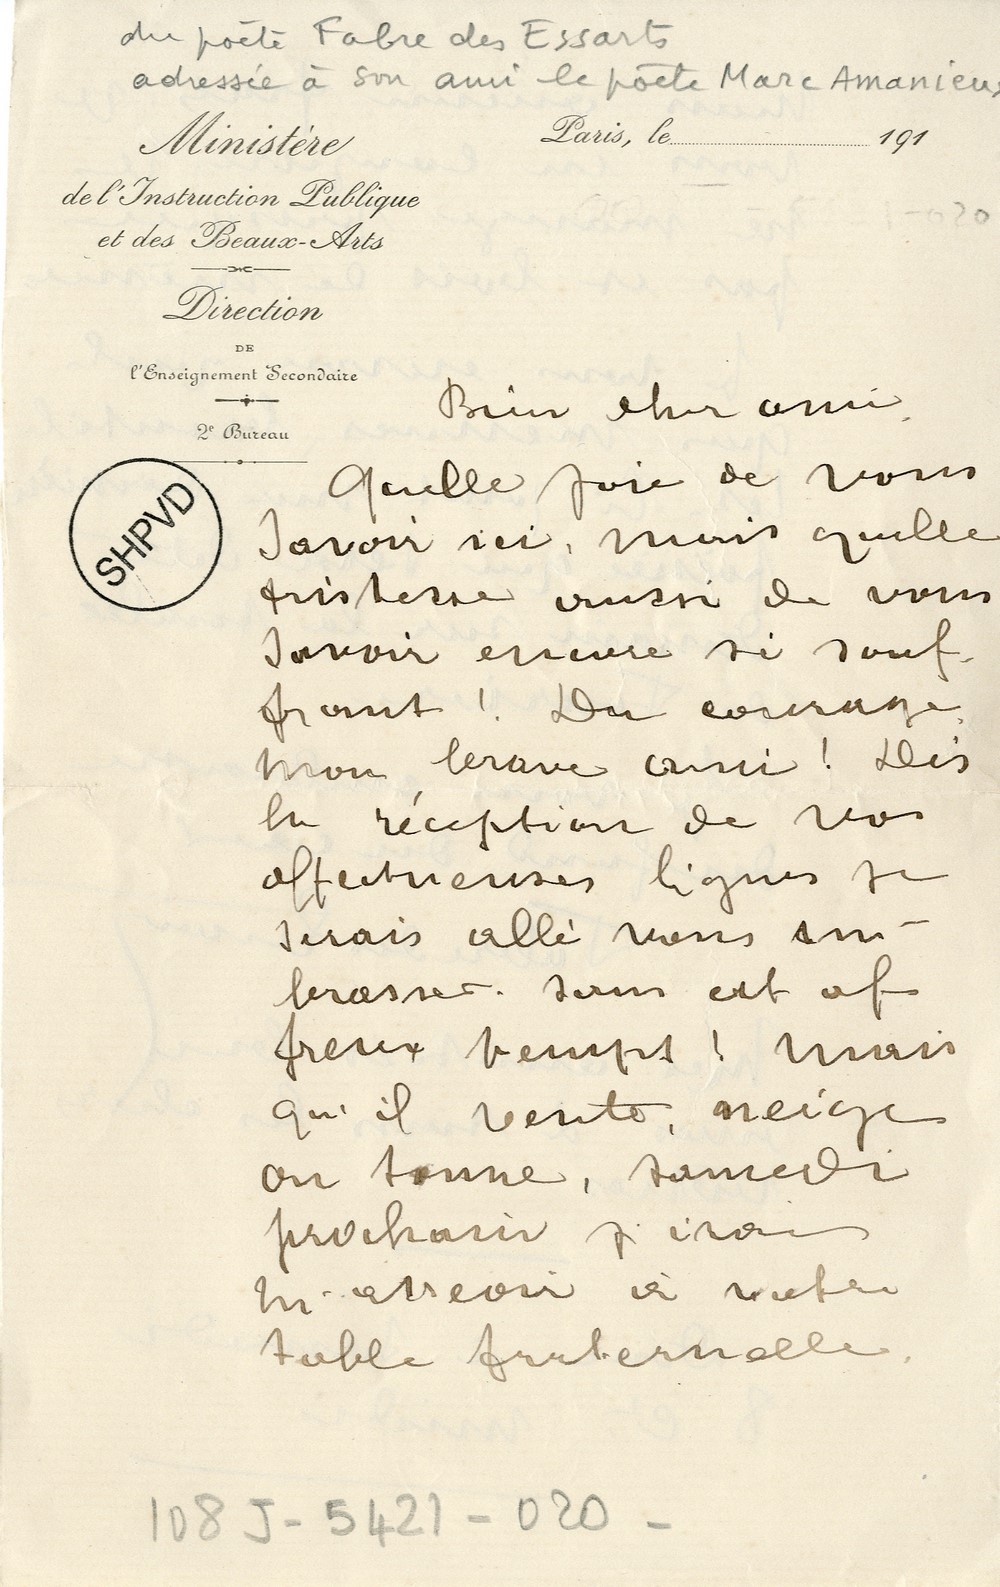 du poète Fabre des Essarts
adressée à son ami le poète Marc Amanieux
Ministère
de l'Instruction Publique
et des Beaux-Arts
Direction
DE
l'Enseignement Secondaire
2e Bureau
Paris, le 191
SHPVD
Bien cher ami,
Quelle joie de vous
savoir ici, mais quelle
tristesse aussi de vous
savoir encore si souf-
frant ! Du courage,
mon brave ami ! Dès
la réception de vos
affectueuses lignes je
serais allé vous em-
brasser sans cet af
freux temps ! Mais
qu'il vente, neige
ou tonne, samedi
prochain j'irai
m'asseoir à votre
table fraternelle.
108 J - 5421 - 020 -